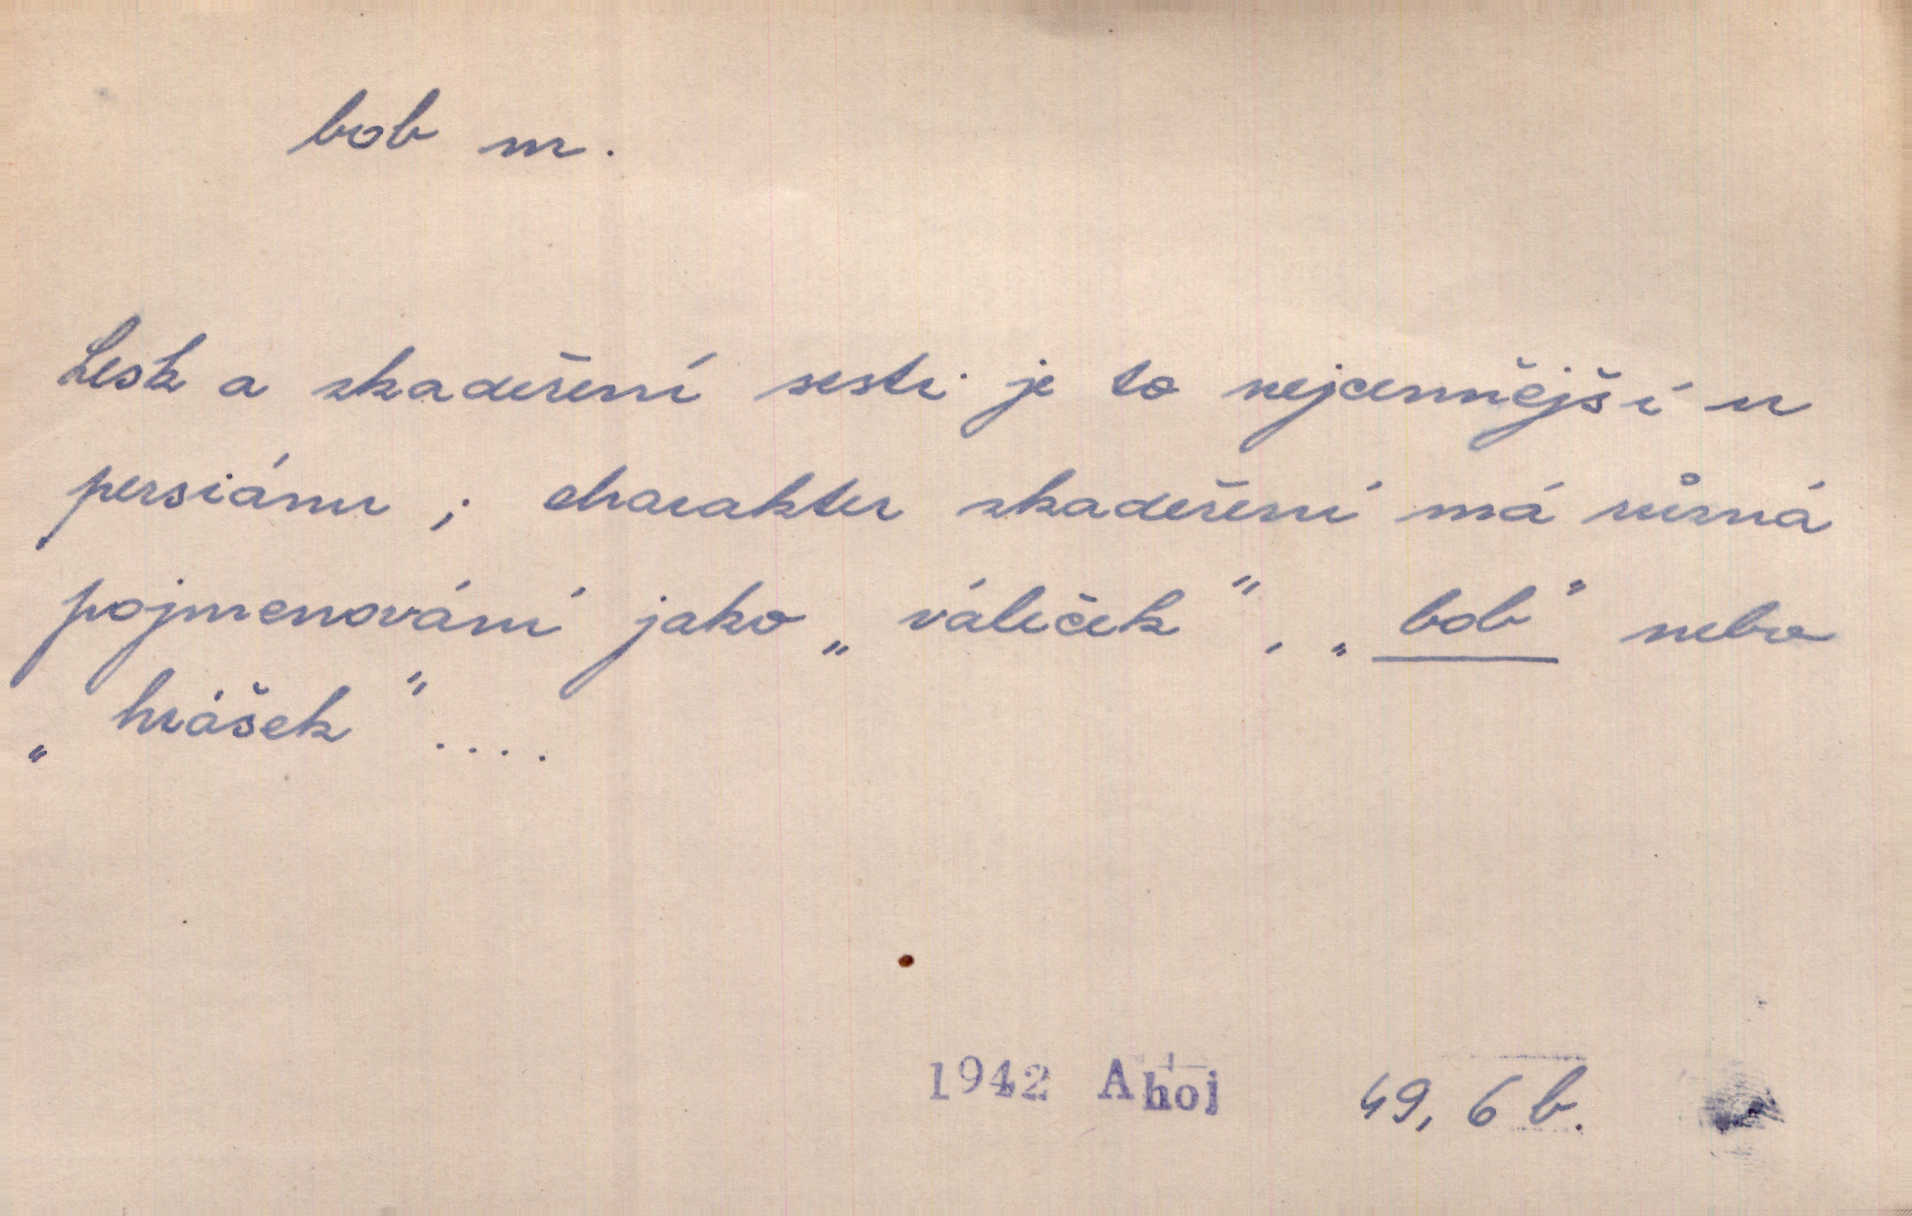 bob m.
Lesk a zkadeření srsti je to nejcennější u
persiánu ; charakter zkadeření má různá
pojmenování jako „ váleček “, „ bob “ nebo
„ hrášek “ ....
1942 Ahoj 49, 6 b.